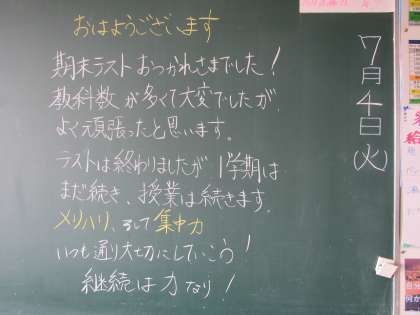 おはようございます
期末ラストおつかれさまでした！
教科数が多くて大変でしたが、
よく頑張ったと思います。
ラストは終わりましたが、1学期は
まだ続き、授業は続きます。
メリハリ、そして集中力
いつも通り大切にしていこう！
継続は力なり！
7月4日(火)